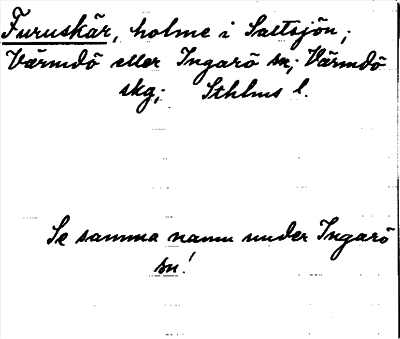 Furuskär, holme i Saltsjön;
Värmdö eller Ingarö sn; Värmdö
skg; Sthlms l.
Se samma namn under Ingarö
sn!